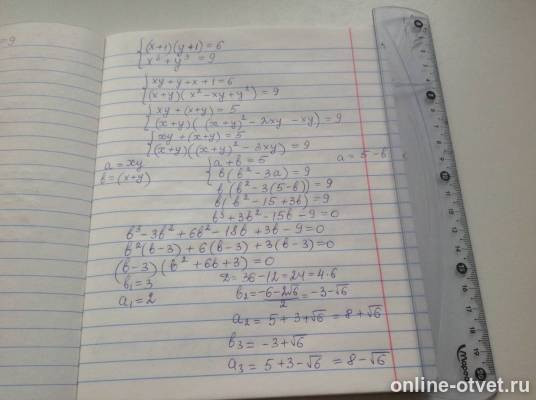 =9
{(x+1)(y+1)=6
{x³+y³=9
{xy+y+x+1=6
{(x+y)(x²-xy+y²)=9
{xy+(x+y)=5
{(x+y)((x+y)²-2xy-xy)=9
{xy+(x+y)=5
{(x+y)((x+y)²-3xy)=9
a=xy {a+b=5 a=5-b
b=(x+y) {b(b²-3a)=9
b(b²-3(5-b))=9
b(b²-15+3b)=9
b³+3b²-15b-9=0
b³-3b²+6b²-18b+3b-9=0
b²(b-3)+6(b-3)+3(b-3)=0
(b-3)(b²+6b+3)=0
b₁=3 D=36-12=24=4·6
a₁=2 b₂=(-6-2√6)/2=-3-√6
a₂=5+3+√6=8+√6
b₃=-3+√6
a₃=5+3-√6=8-√6
online-otvet.ru